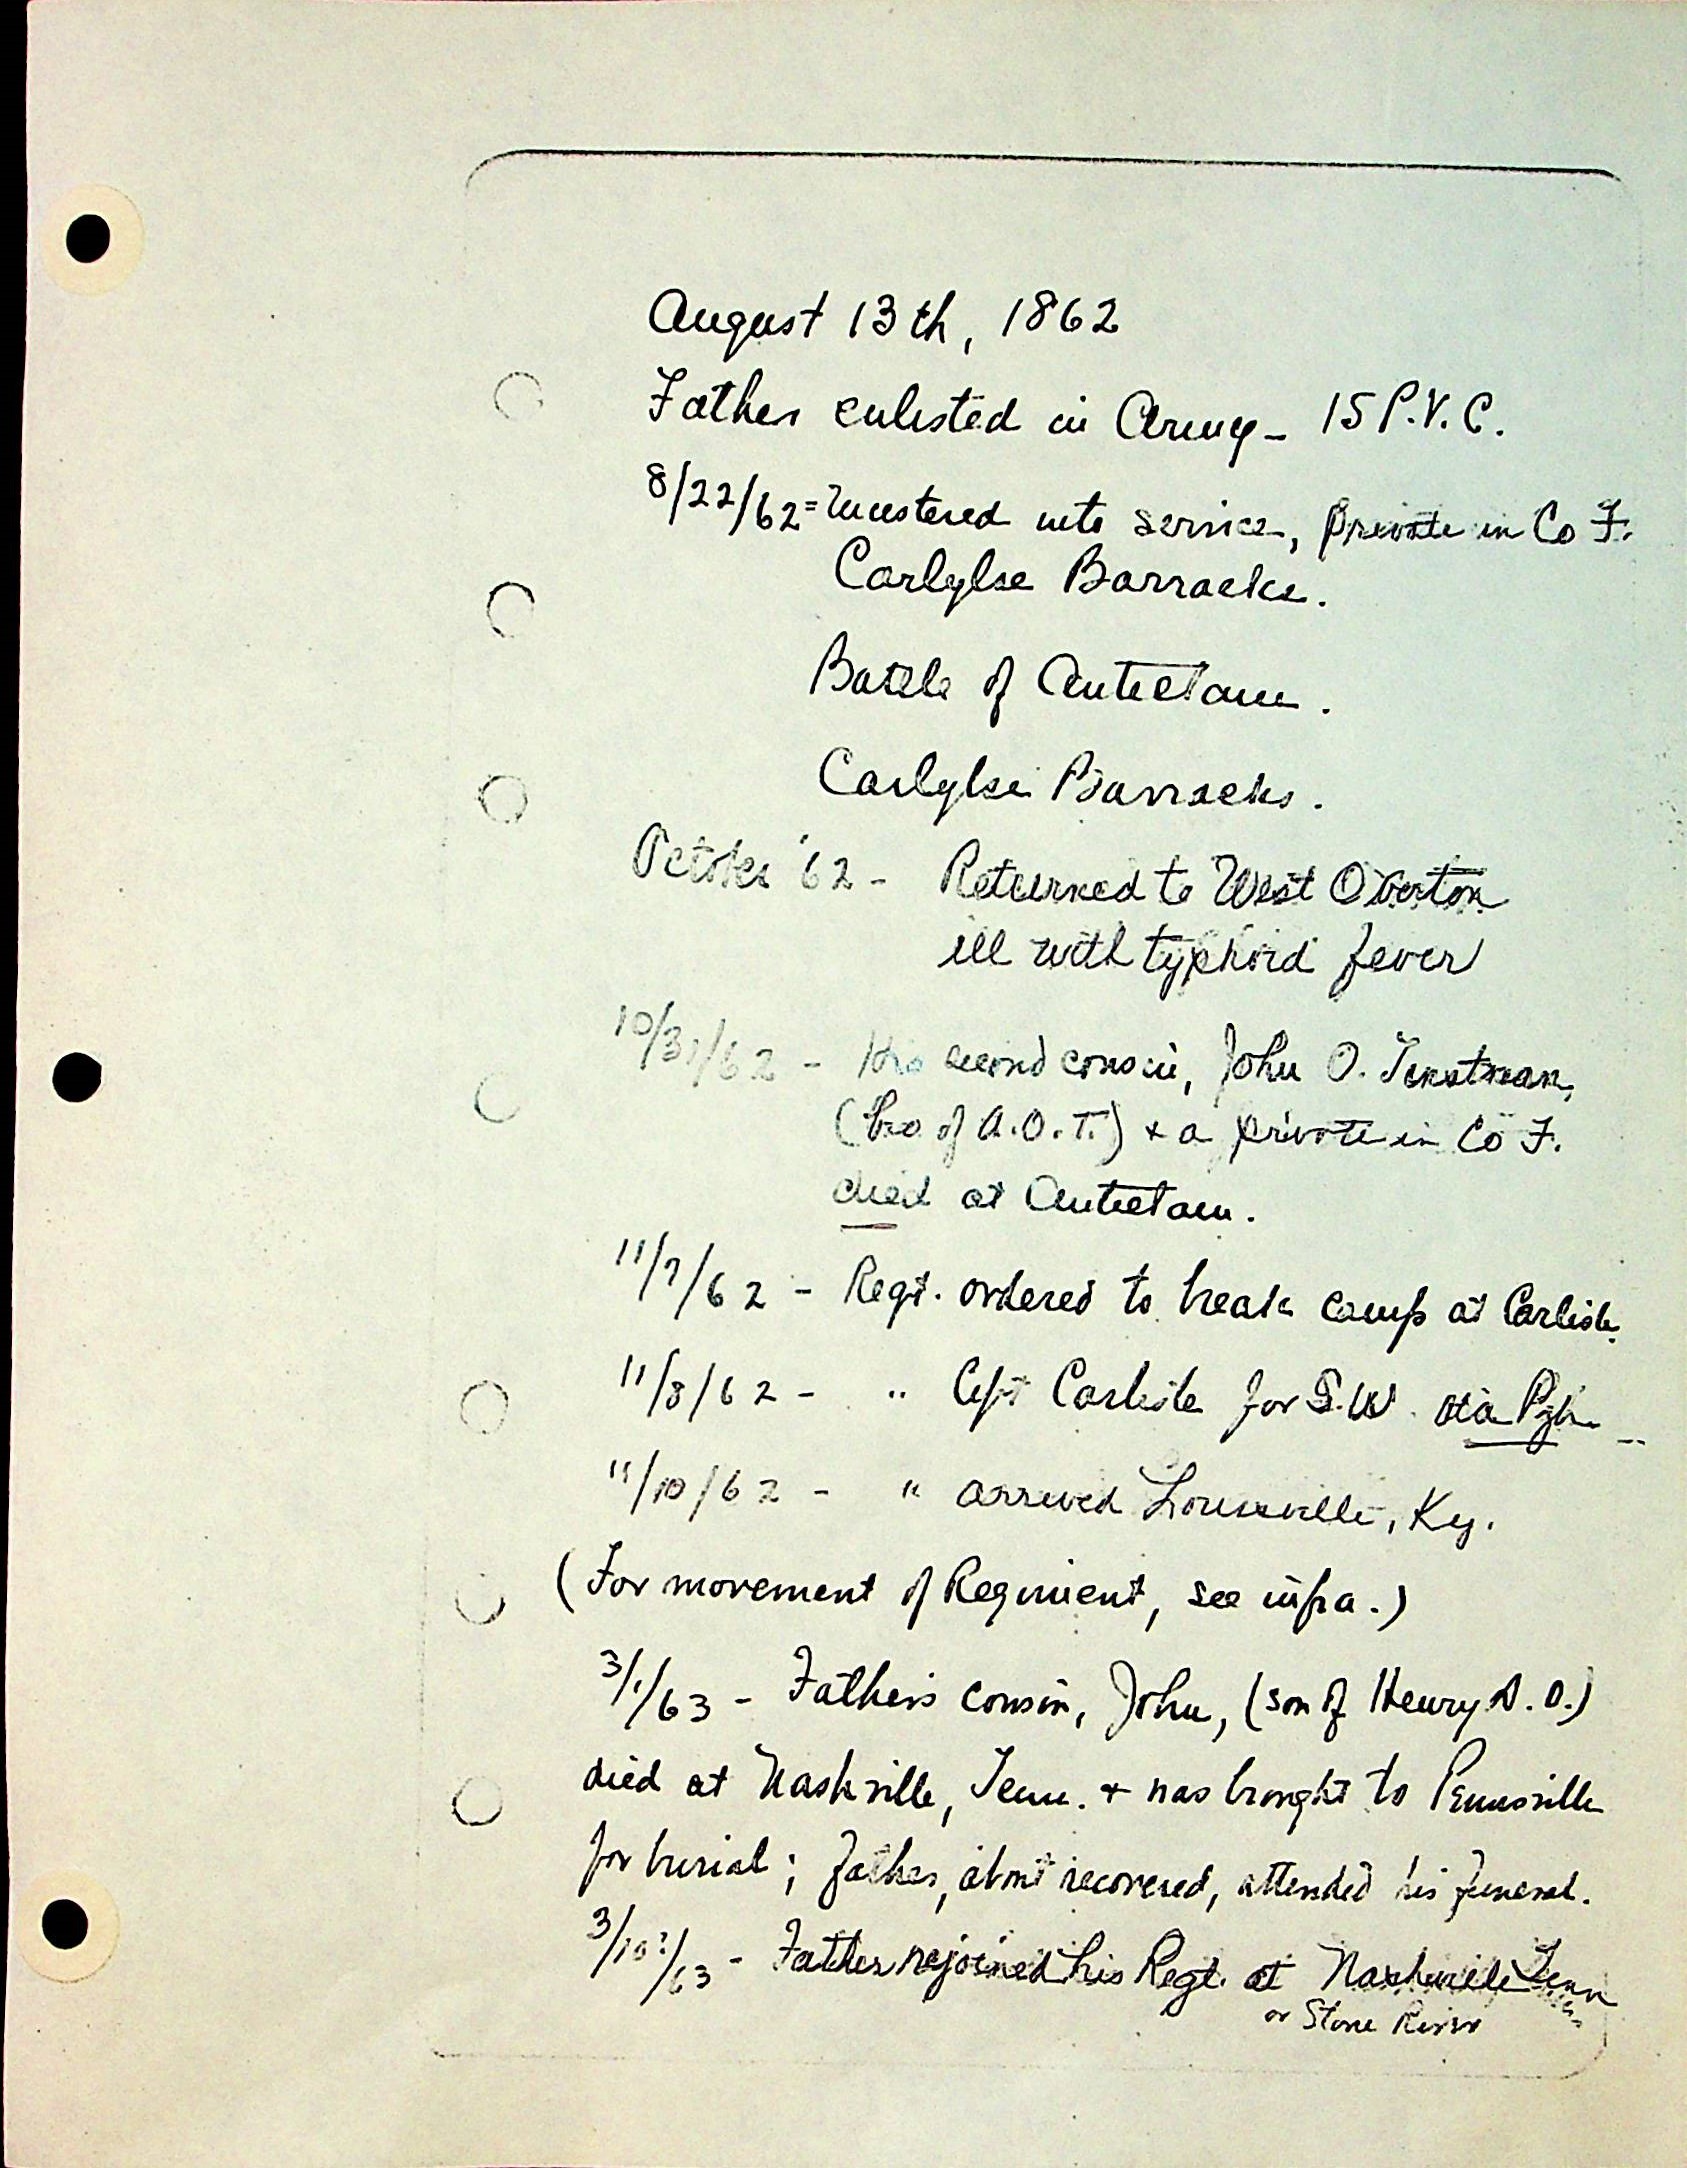 August 13th, 1862
Father enlisted in Army - 15 P.V.C.
8/22/62 = Mustered into service, private in Co F.
Carlylse Barracks.
Battle of Antietam.
Carlylse Barracks.
October '62 - Returned to West Overton
ill with typhoid fever
10/31/62 - His second cousin, John O. Tinstman,
(bro of A.O.T.) + a private in Co F.
died at Antietam.
11/7/62 - Regt. ordered to break camp at Carlisle.
11/8/62 - " left Carlisle for S.W. via Pgh.
11/10/62 - " arrived Louisville, Ky.
(For movement of Regiment, see infra.)
3/1/63 - Father's cousin, John, (son of Henry D. O.)
died at Nashville, Tenn. + was brought to Pennsville
for burial; father, about recovered, attended his funeral.
3/10?/63 - Father rejoined his Regt. at Nashville Tenn
or Stone River